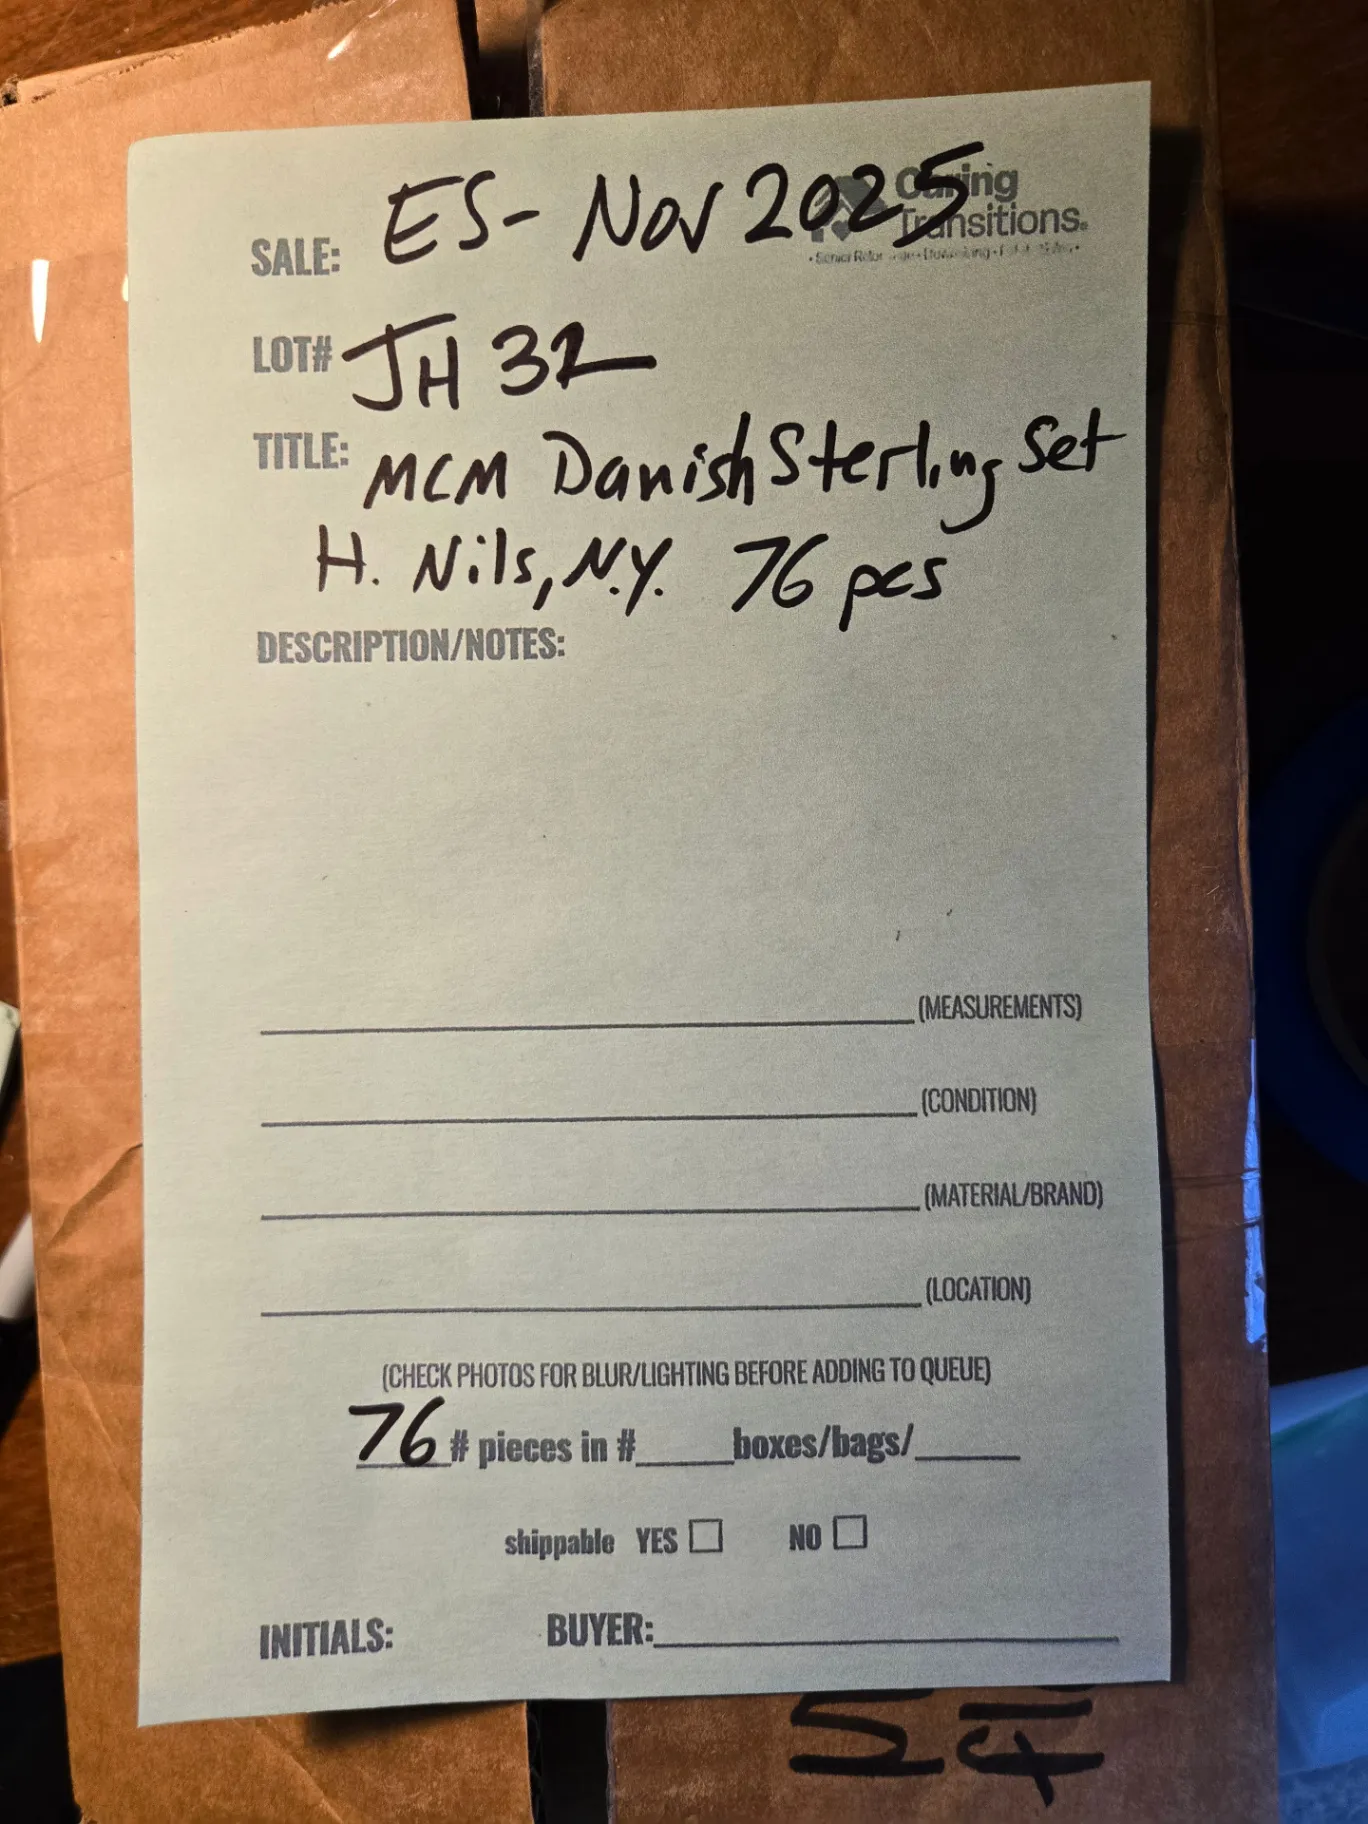 Caring
Transitions
SALE: ES- Nov 2025
LOT# JH 32
TITLE: MCM Danish Sterling Set
H. Nils, N.Y. 76 pcs
DESCRIPTION/NOTES:
(MEASUREMENTS)
(CONDITION)
(MATERIAL/BRAND)
(LOCATION)
(CHECK PHOTOS FOR BLUR/LIGHTING BEFORE ADDING TO QUEUE)
76 # pieces in #_____boxes/bags/_____
shippable YES ☐ NO ☐
INITIALS: BUYER: